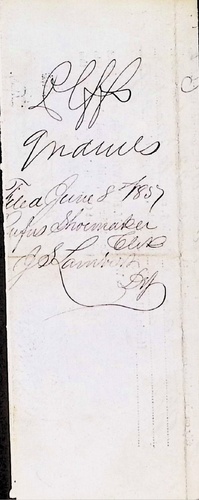 Plffs
Filed June 8th 1857
Rufus Shoemaker
Clerk
J S Lambert
Dpy